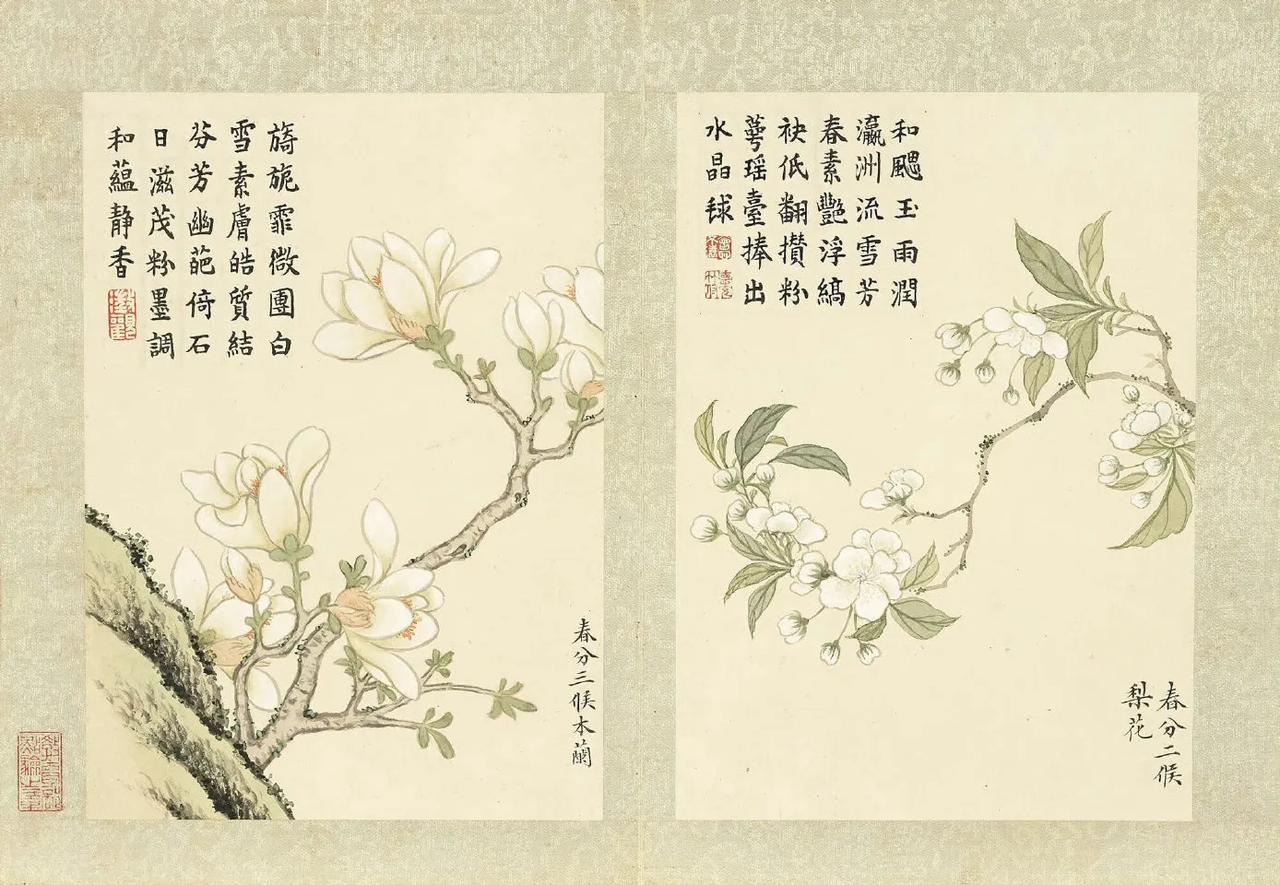 和颸玉雨潤
瀛洲流雪芳
春素豔浮縞
袂低翻攢粉
蕚瑶臺捧出
水晶毬
春分二候
梨花
旖旎霏微團白
雪素膚皓質結
芬芳幽葩倚石
日滋茂粉墨調
和蘊静香
春分三候木蘭